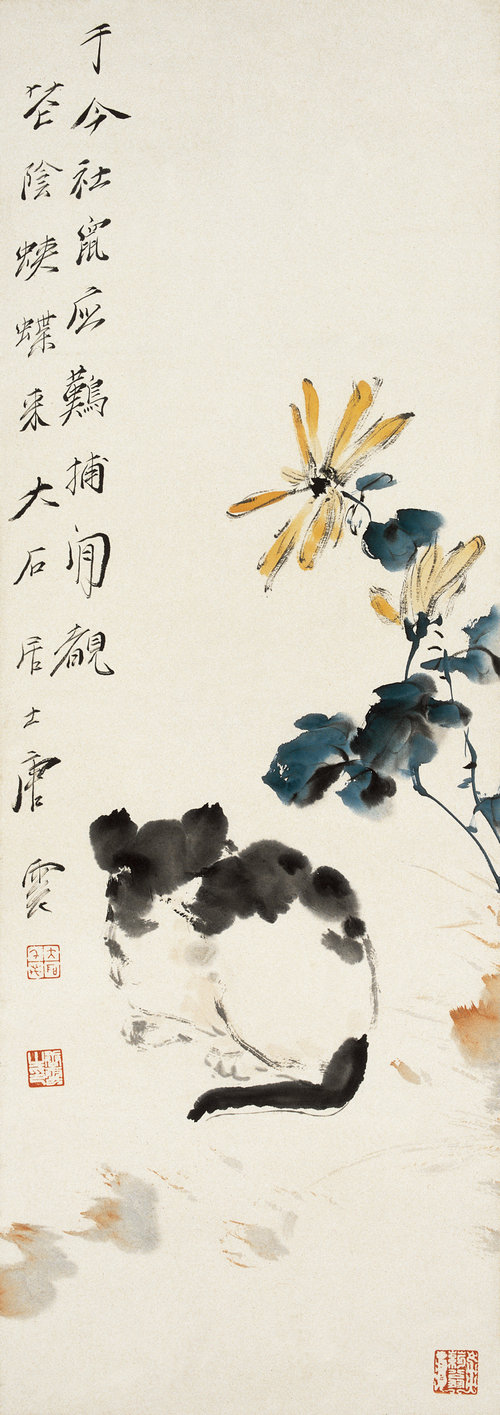 于今社鼠应難捕閒覩
花陰蛺蝶来大石居士唐雲